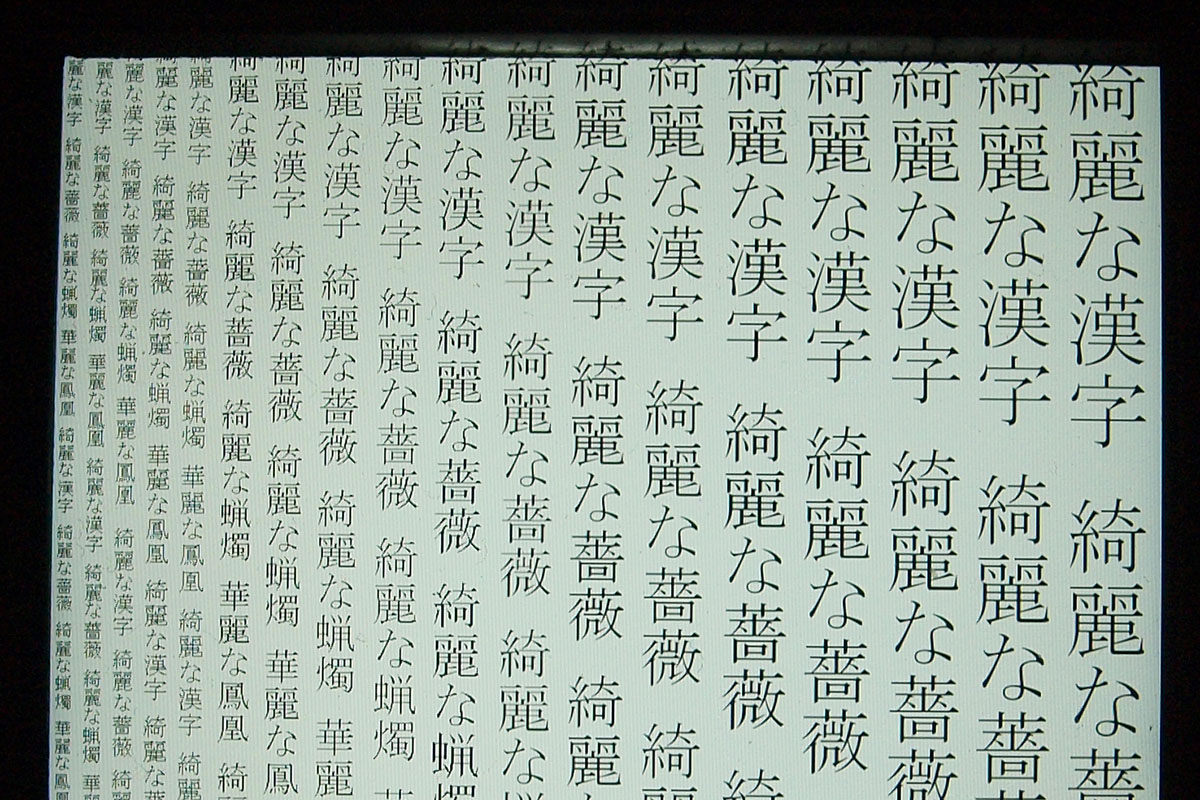 綺麗な漢字 綺麗な薔
綺麗な漢字 綺麗な薔
綺麗な漢字 綺麗な薔薇
綺麗な漢字 綺麗な薔薇
綺麗な漢字 綺麗な薔薇 綺
綺麗な漢字 綺麗な薔薇 綺
綺麗な漢字 綺麗な薔薇 綺麗
綺麗な漢字 綺麗な薔薇 綺麗な
綺麗な漢字 綺麗な薔薇 綺麗な蝋
綺麗な漢字 綺麗な薔薇 綺麗な蝋燭
綺麗な漢字 綺麗な薔薇 綺麗な蝋燭 華麗
綺麗な漢字 綺麗な薔薇 綺麗な蝋燭 華麗な鳳
綺麗な漢字 綺麗な薔薇 綺麗な蝋燭 華麗な鳳凰 綺
麗な漢字 綺麗な薔薇 綺麗な蝋燭 華麗な鳳凰 綺麗な漢字 綺麗
麗な漢字 綺麗な薔薇 綺麗な蝋燭 華麗な鳳凰 綺麗な漢字 綺麗な
麗な漢字 綺麗な薔薇 綺麗な蝋燭 華麗な鳳凰 綺麗な漢字 綺麗な薔薇 綺
麗な漢字 綺麗な薔薇 綺麗な蝋燭 華麗な鳳凰 綺麗な漢字 綺麗な薔薇 綺麗な蝋燭 華
麗な漢字 綺麗な薔薇 綺麗な蝋燭 華麗な鳳凰 綺麗な漢字 綺麗な薔薇 綺麗な蝋燭 華麗な鳳